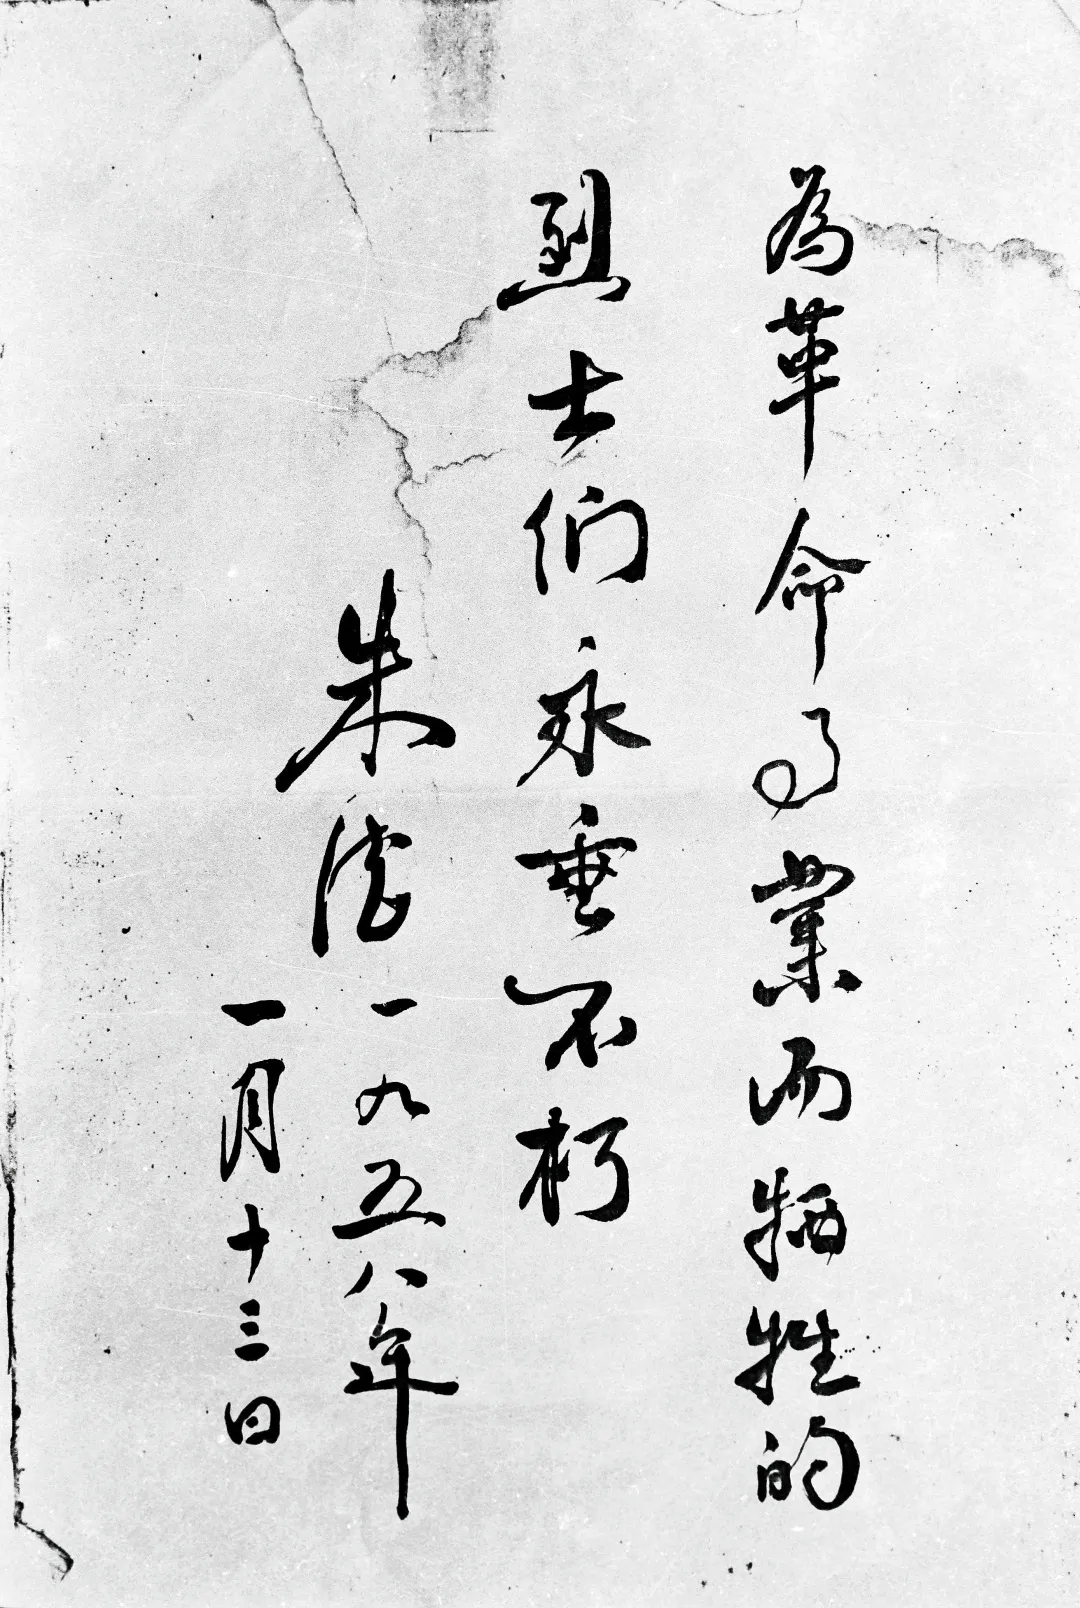 為革命事業而牺牲的
烈士们永垂不朽
朱德一九五八年
一月十三日